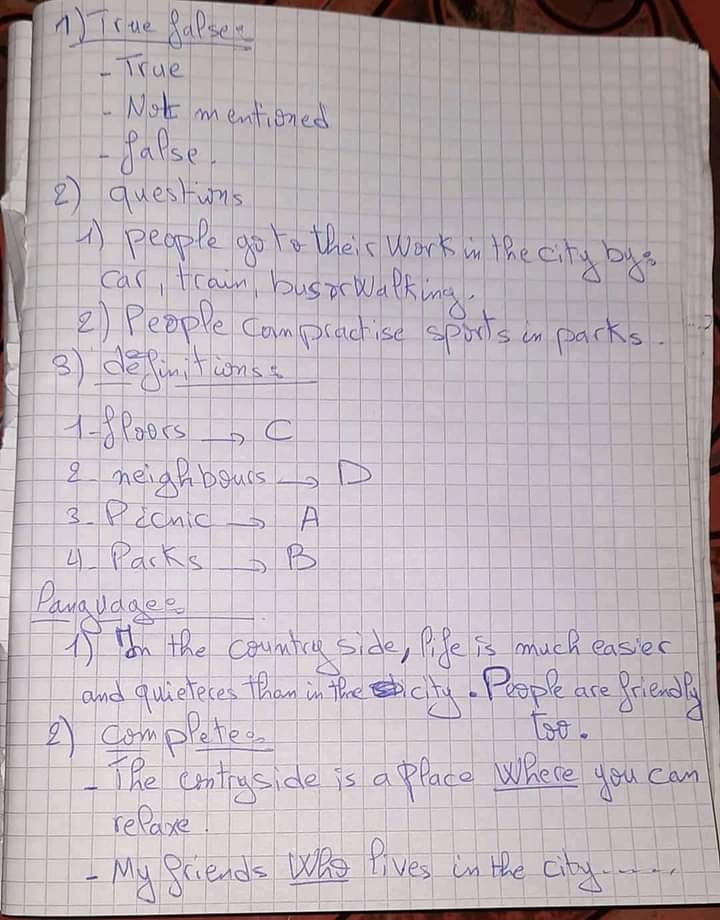 1) True false:
- True
- Not mentioned
- false.
2) questions
1) people go to their work in the city by:
car, train, bus or walking.
2) People can practise sports in parks.
3) definitions:
1-floors → C
2 neighbours → D
3- Picnic → A
4- Parks → B
language:
1) In the country side, life is much easier
and quieteres than in the city. People are friendly
too.
2) complete:
- The contryside is a place where you can
relaxe.
- My friends who lives in the city......